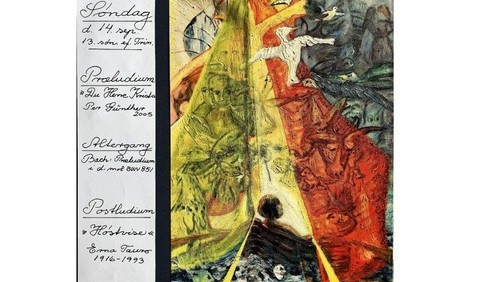 Søndag
d. 14. sep.
13. søn. ef. Trin.
Præludium
» Du Herre Krist«
Per Günther
2005
Altergang
Bach: Præludium
i d. mol BWV 851
Postludium
» Höstvise «
Erna Tauro
1916-1993